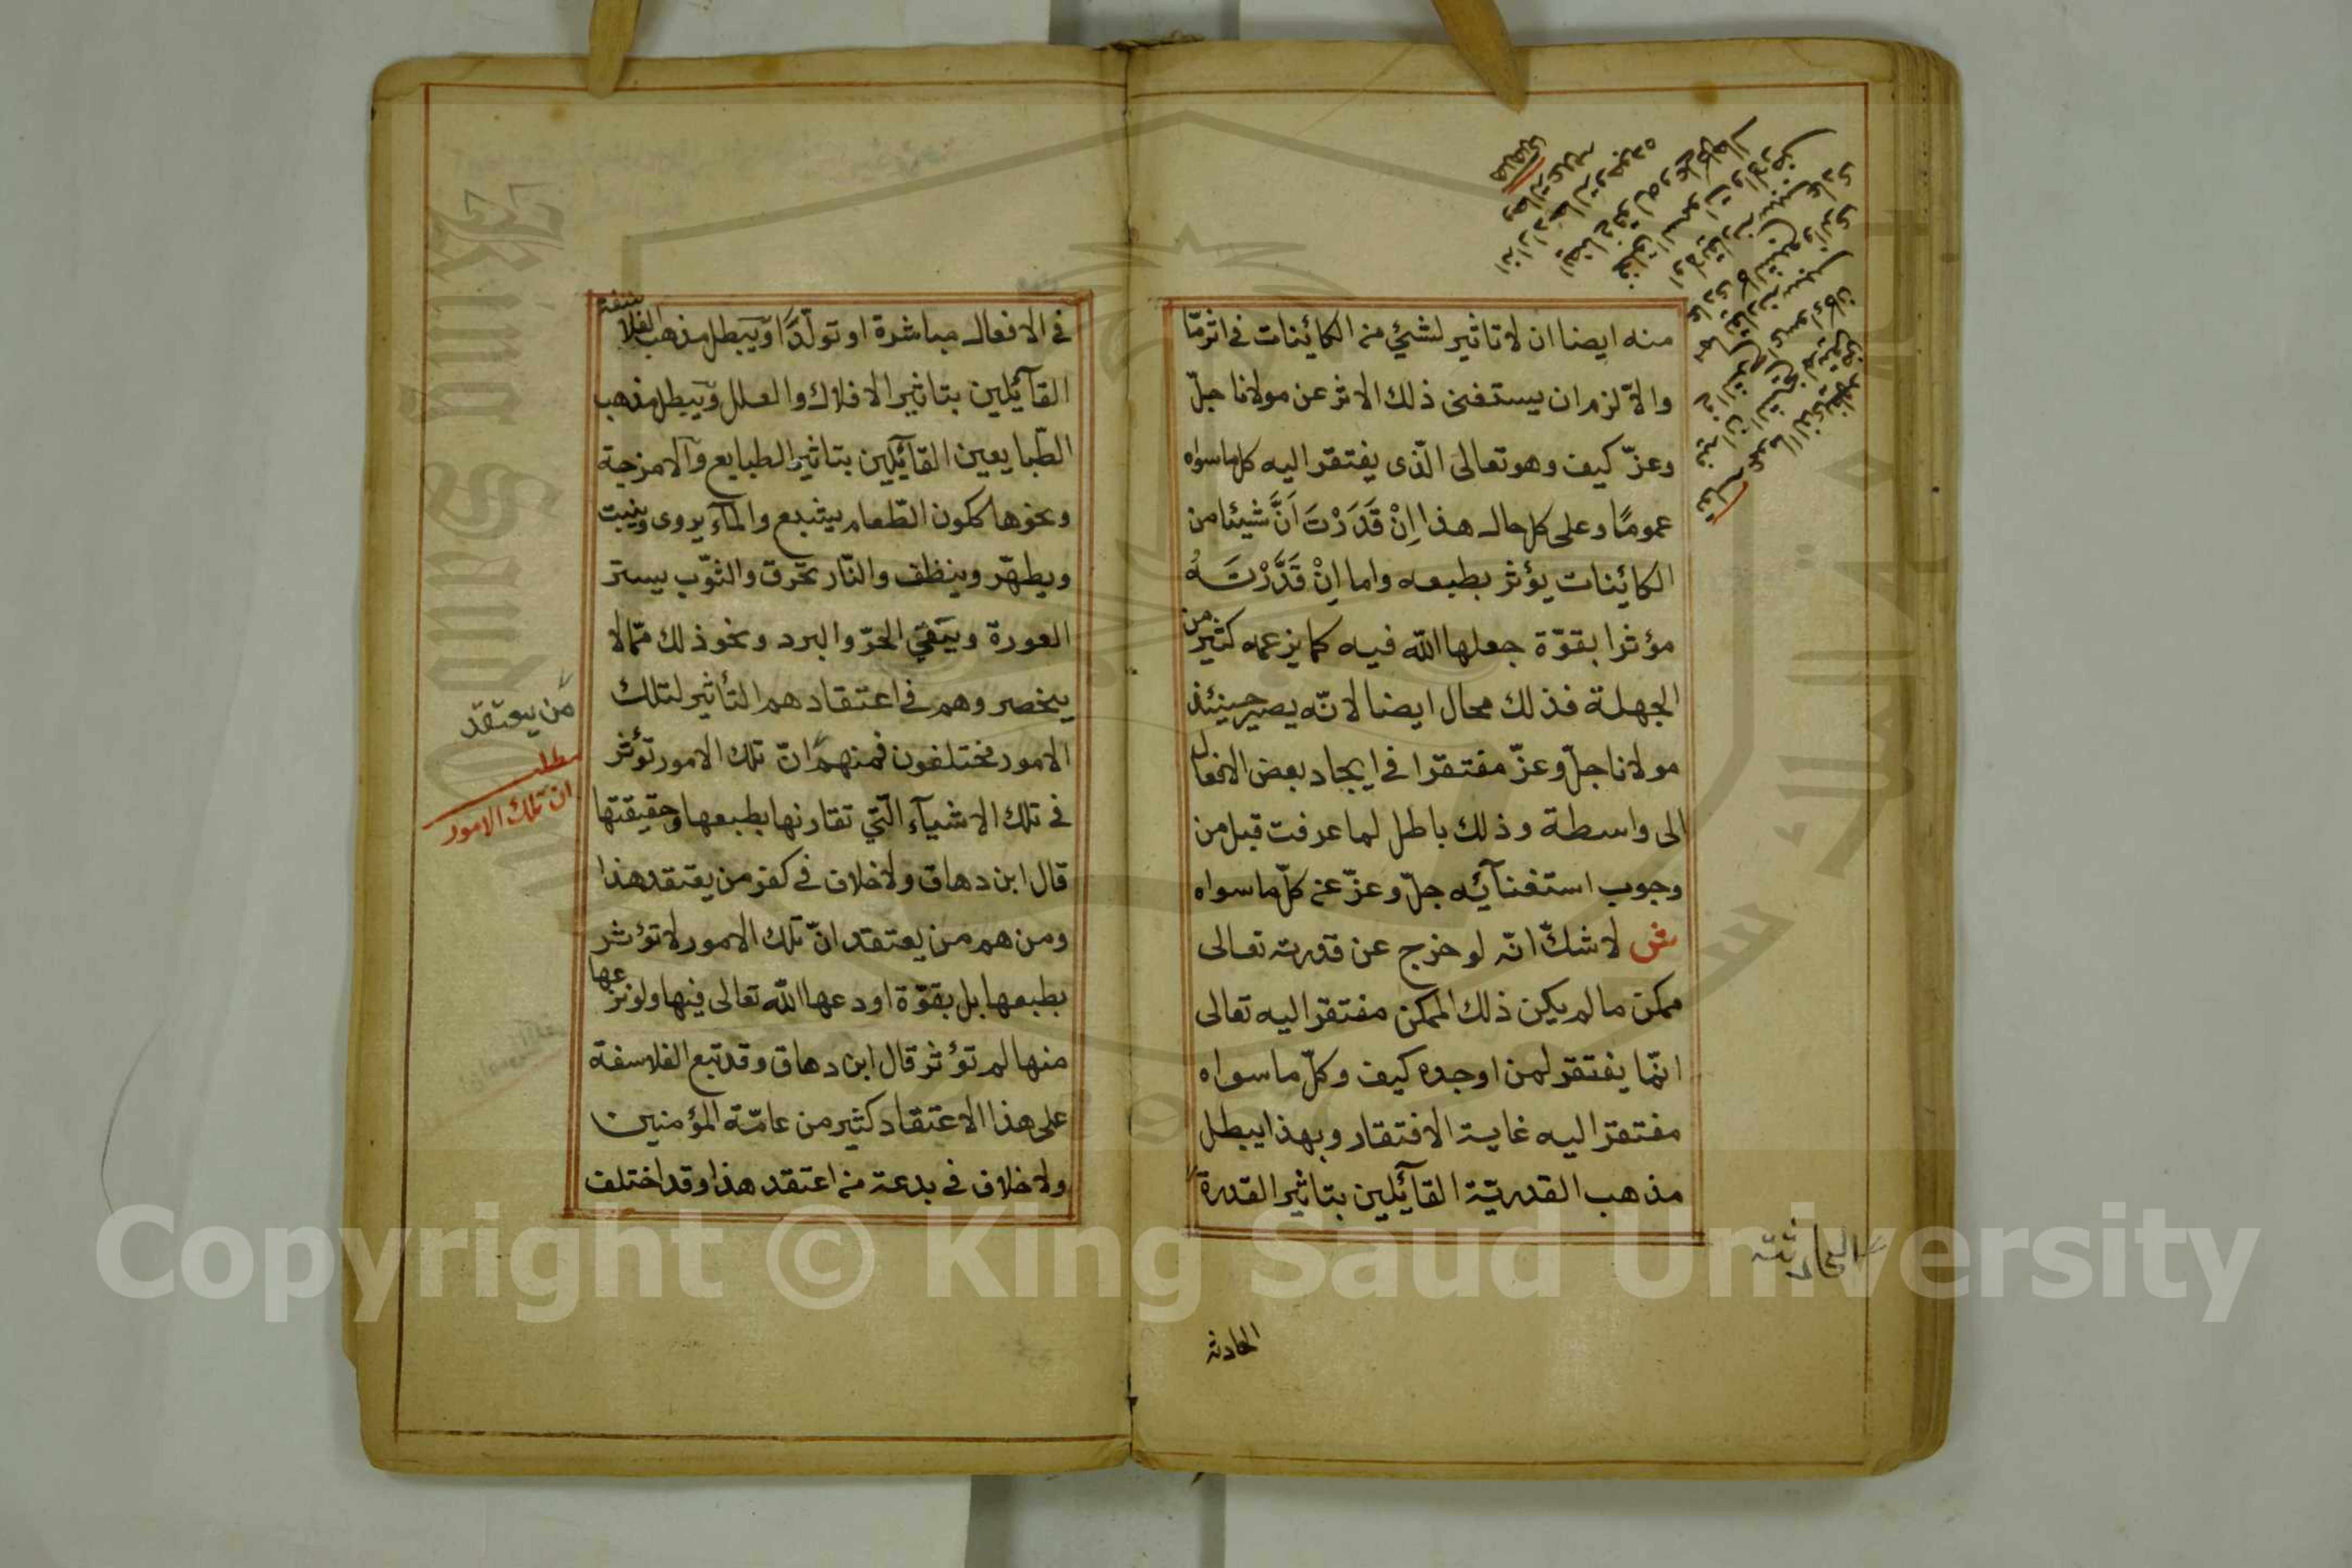 منه ايضا ان لا تاثير لشيئ من الكائينات في اثر مّا
والاّ لزم ان يستغنى ذلك الاثر عن مولانا جلّ
وعزّ كيف وهو تعالى الّذى يفتقر اليه كل ما سواه
عمومًا وعلى كل حال هذا اِنْ قَدَرْتَ اَنَّ شيئا من
الكائينات يؤثر بطبعه واما اِنْ قَدَّرْتَهُ
مؤثرا بقوّة جعلها الله فيه كما يزعمه كثير من
الجهلة فذلك محال ايضا لانّه يصير حينئذ
مولانا جلّ وعزّ مفتقرا في ايجاد بعض الافعال
الى واسطة وذلك باطل لما عرفت قبل من
وجوب استغنآئه جلّ وعزّ عن كلّ ما سواه
ش لا شكّ انّه لو خرج عن قدرته تعالى
ممكن ما لم يكن ذلك الممكن مفتقرا اليه تعالى
انّما يفتقر لمن اوجده كيف وكلّ ما سواه
مفتقرا اليه غاية الافتقار وبهذا يبطل
مذهب القدريّة القآئلين بتاثير القدرة
الحادثة
الحادثه
في الافعال مباشرة او تولّدًا ويبطل مذهب الفلاسفة
القآئلين بتاثير الافلاك والعلل ويبطل مذهب
الطّبايعين القآئلين بتاثير الطبايع والامزجة
ونحوها ككون الطّعام يشبع والمآء يروى وينبت
ويطهّر وينظف والنّار تحرق والثوّب يستر
العورة ويَقي الحرّ والبرد ونحو ذلك ممّا لا
ينحصر وهم في اعتقادهم التأثير لتلك
الامور مختلفون فمنهم انّ تلك الامور تؤثر
من يعتقد
مطلب
ان تلك الامور
في تلك الاشيآء الّتي تقارنها بطبعها وحقيقتها
قال ابن دهاق ولا خلاف في كفر من يعتقد هذا
ومن هم من يعتقد انّ تلك الامور لا تؤثر
بطبعها بل بقوّة اودعها الله تعالى فيها ولو نزعها
منها لم تؤثر قال ابن دهاق وقد تبع الفلاسفة
على هذا الاعتقاد كثير من عامّة المؤمنين
ولا خلاف في بدعة من اعتقد هذا وقد اختلف
King Saud University
Copyright © King Saud University